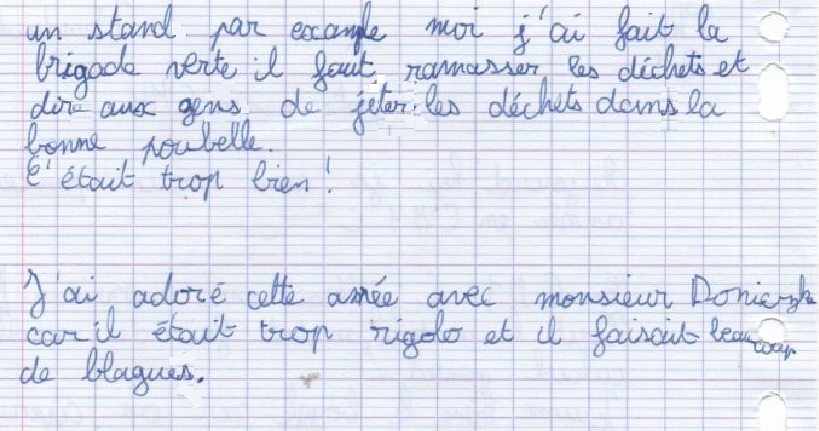 un stand par example moi j'ai fait la
brigade verte il faut ramasser les déchets et
dire aux gens de jeter les déchets dans la
bonne poubelle.
C'était trop bien !
J'ai adoré cette année avec monsieur
car il était trop rigolo et il faisait beaucoup
de blagues.